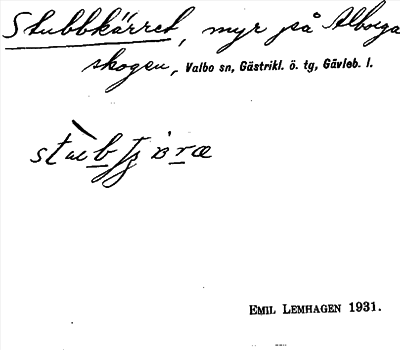 Stubbkärret, myr på Alborga
skogen, Valbo sn, Gästrikl. ö. tg, Gävleb. l.
EMIL LEMHAGEN 1931.